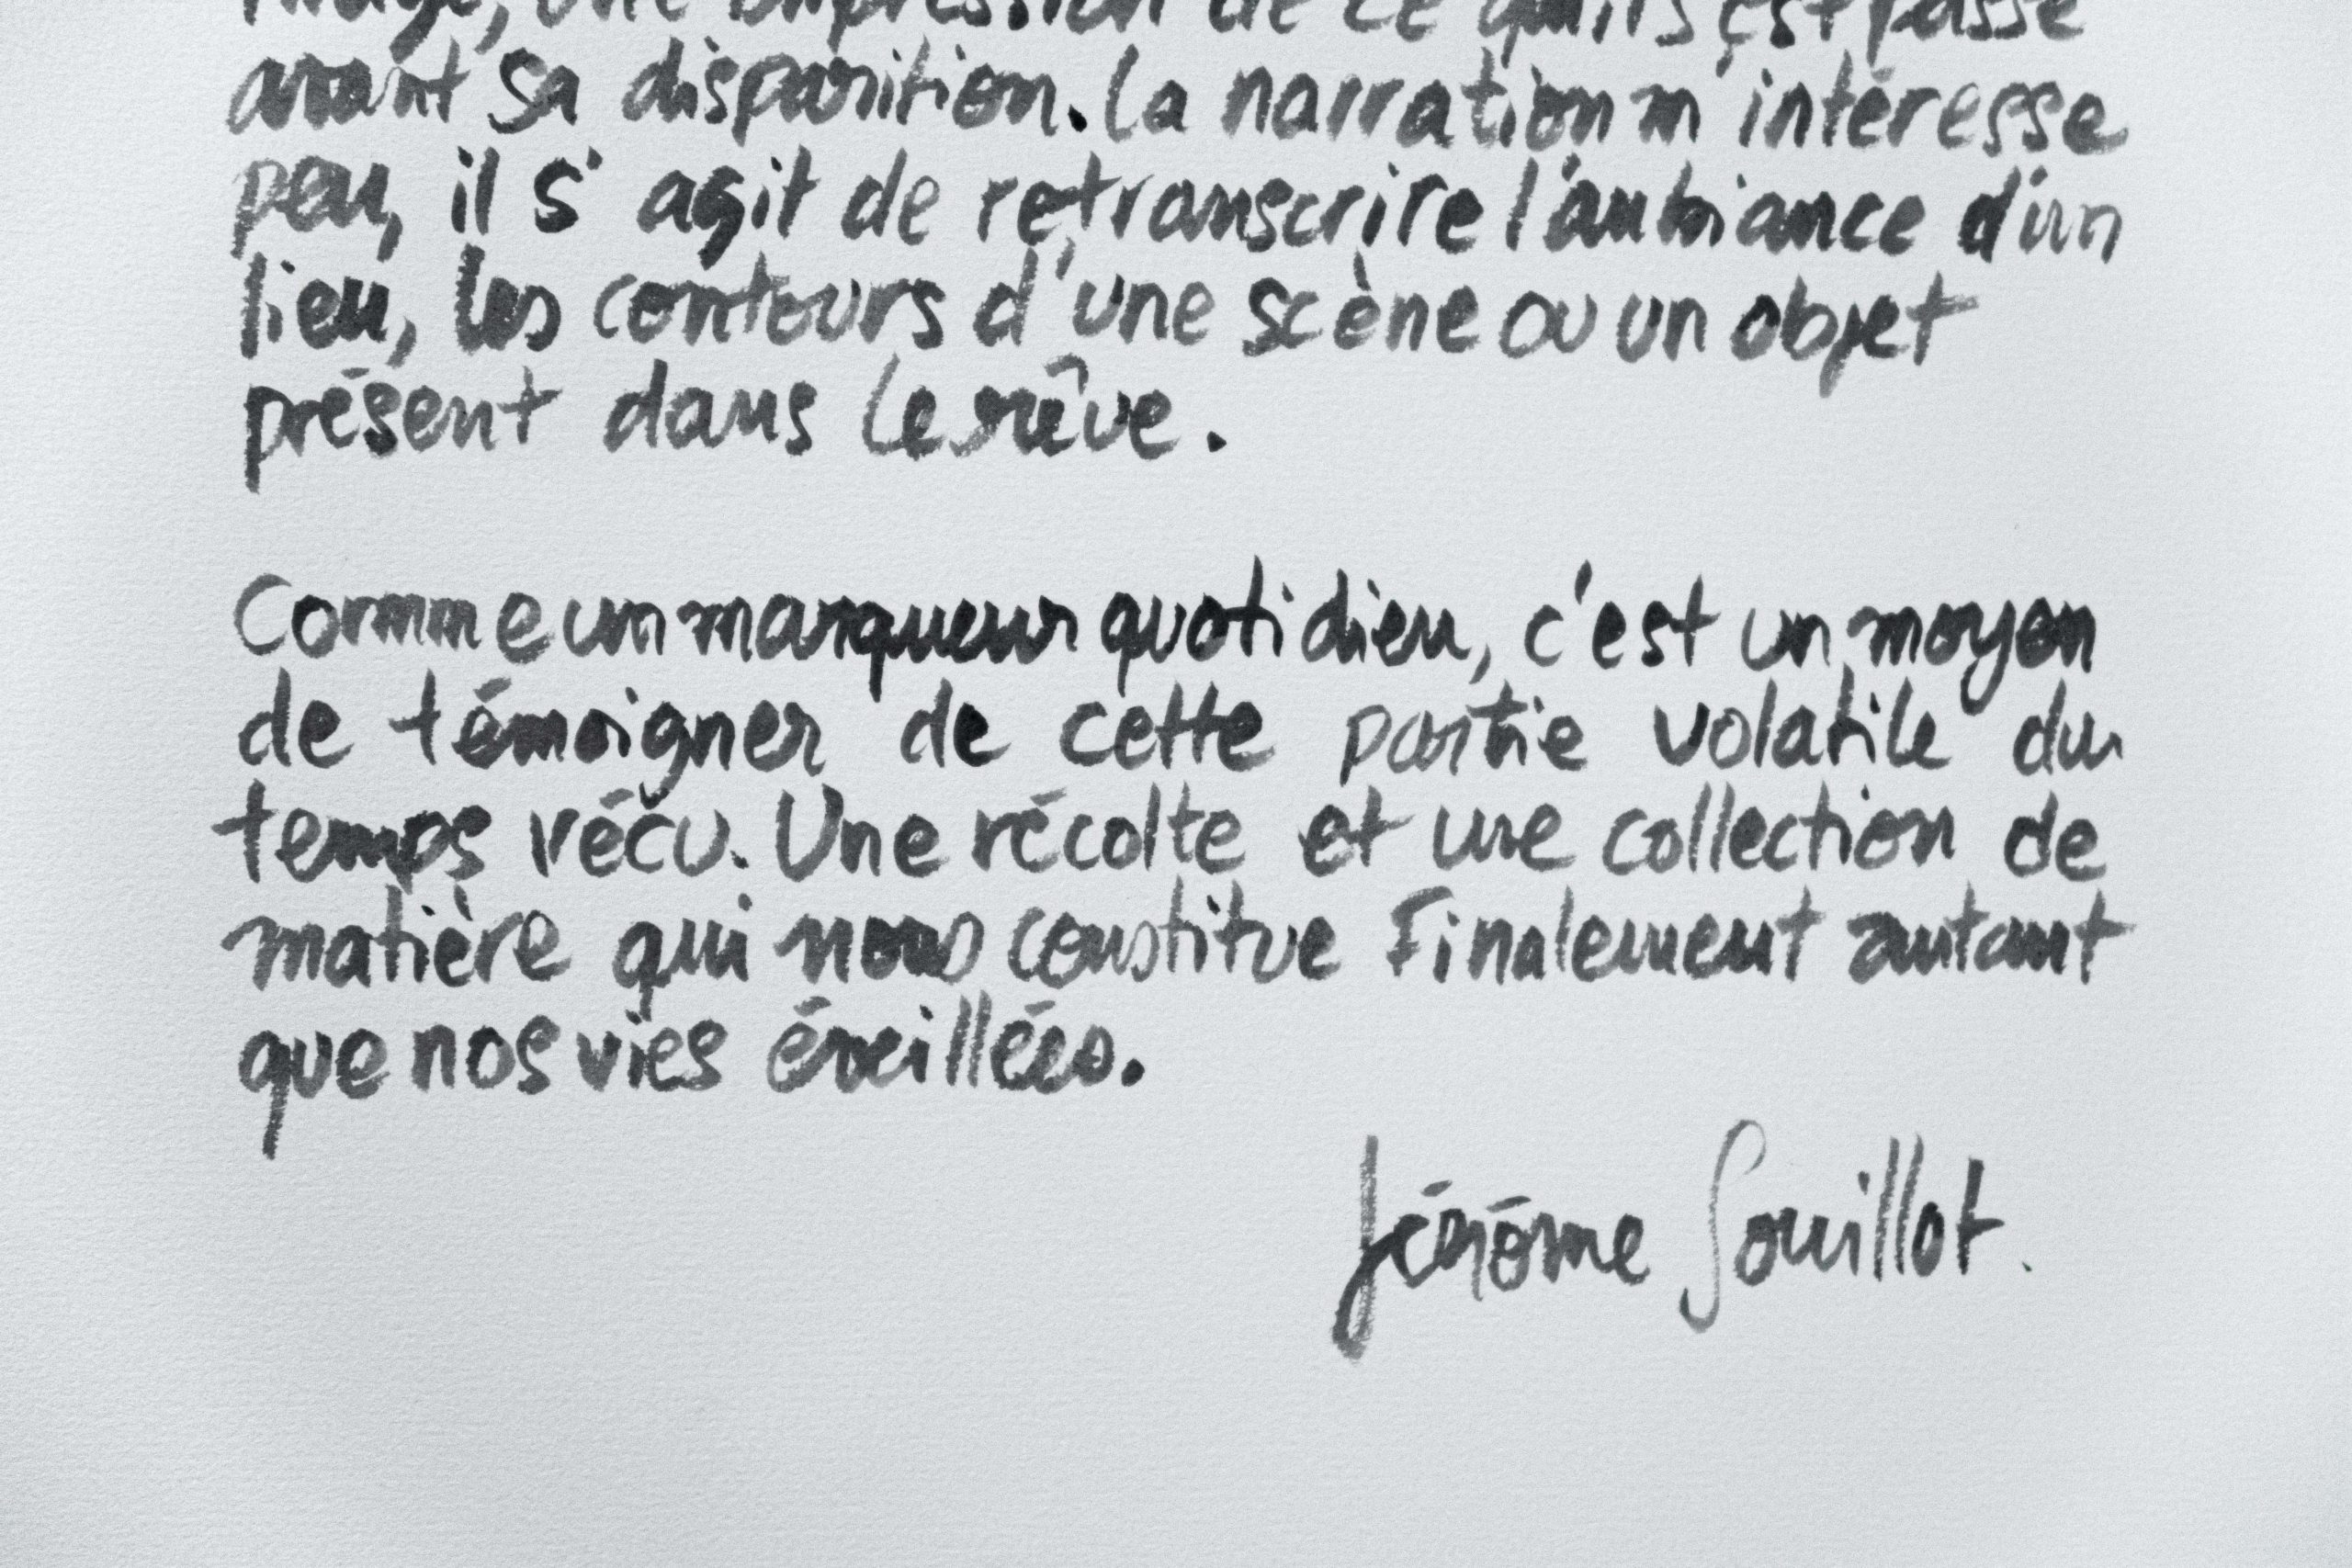 une impression de ce qu'il s'est passé
avant sa disparition. La narration m'intéresse
peu, il s'agit de retranscrire l'ambiance d'un
lieu, les contours d'une scène ou un objet
présent dans le rêve.
Comme un marqueur quotidien, c'est un moyen
de témoigner de cette partie volatile du
temps vécu. Une récolte et une collection de
matière qui nous constitue finalement autant
que nos vies éveillées.
Jérôme Souillot.